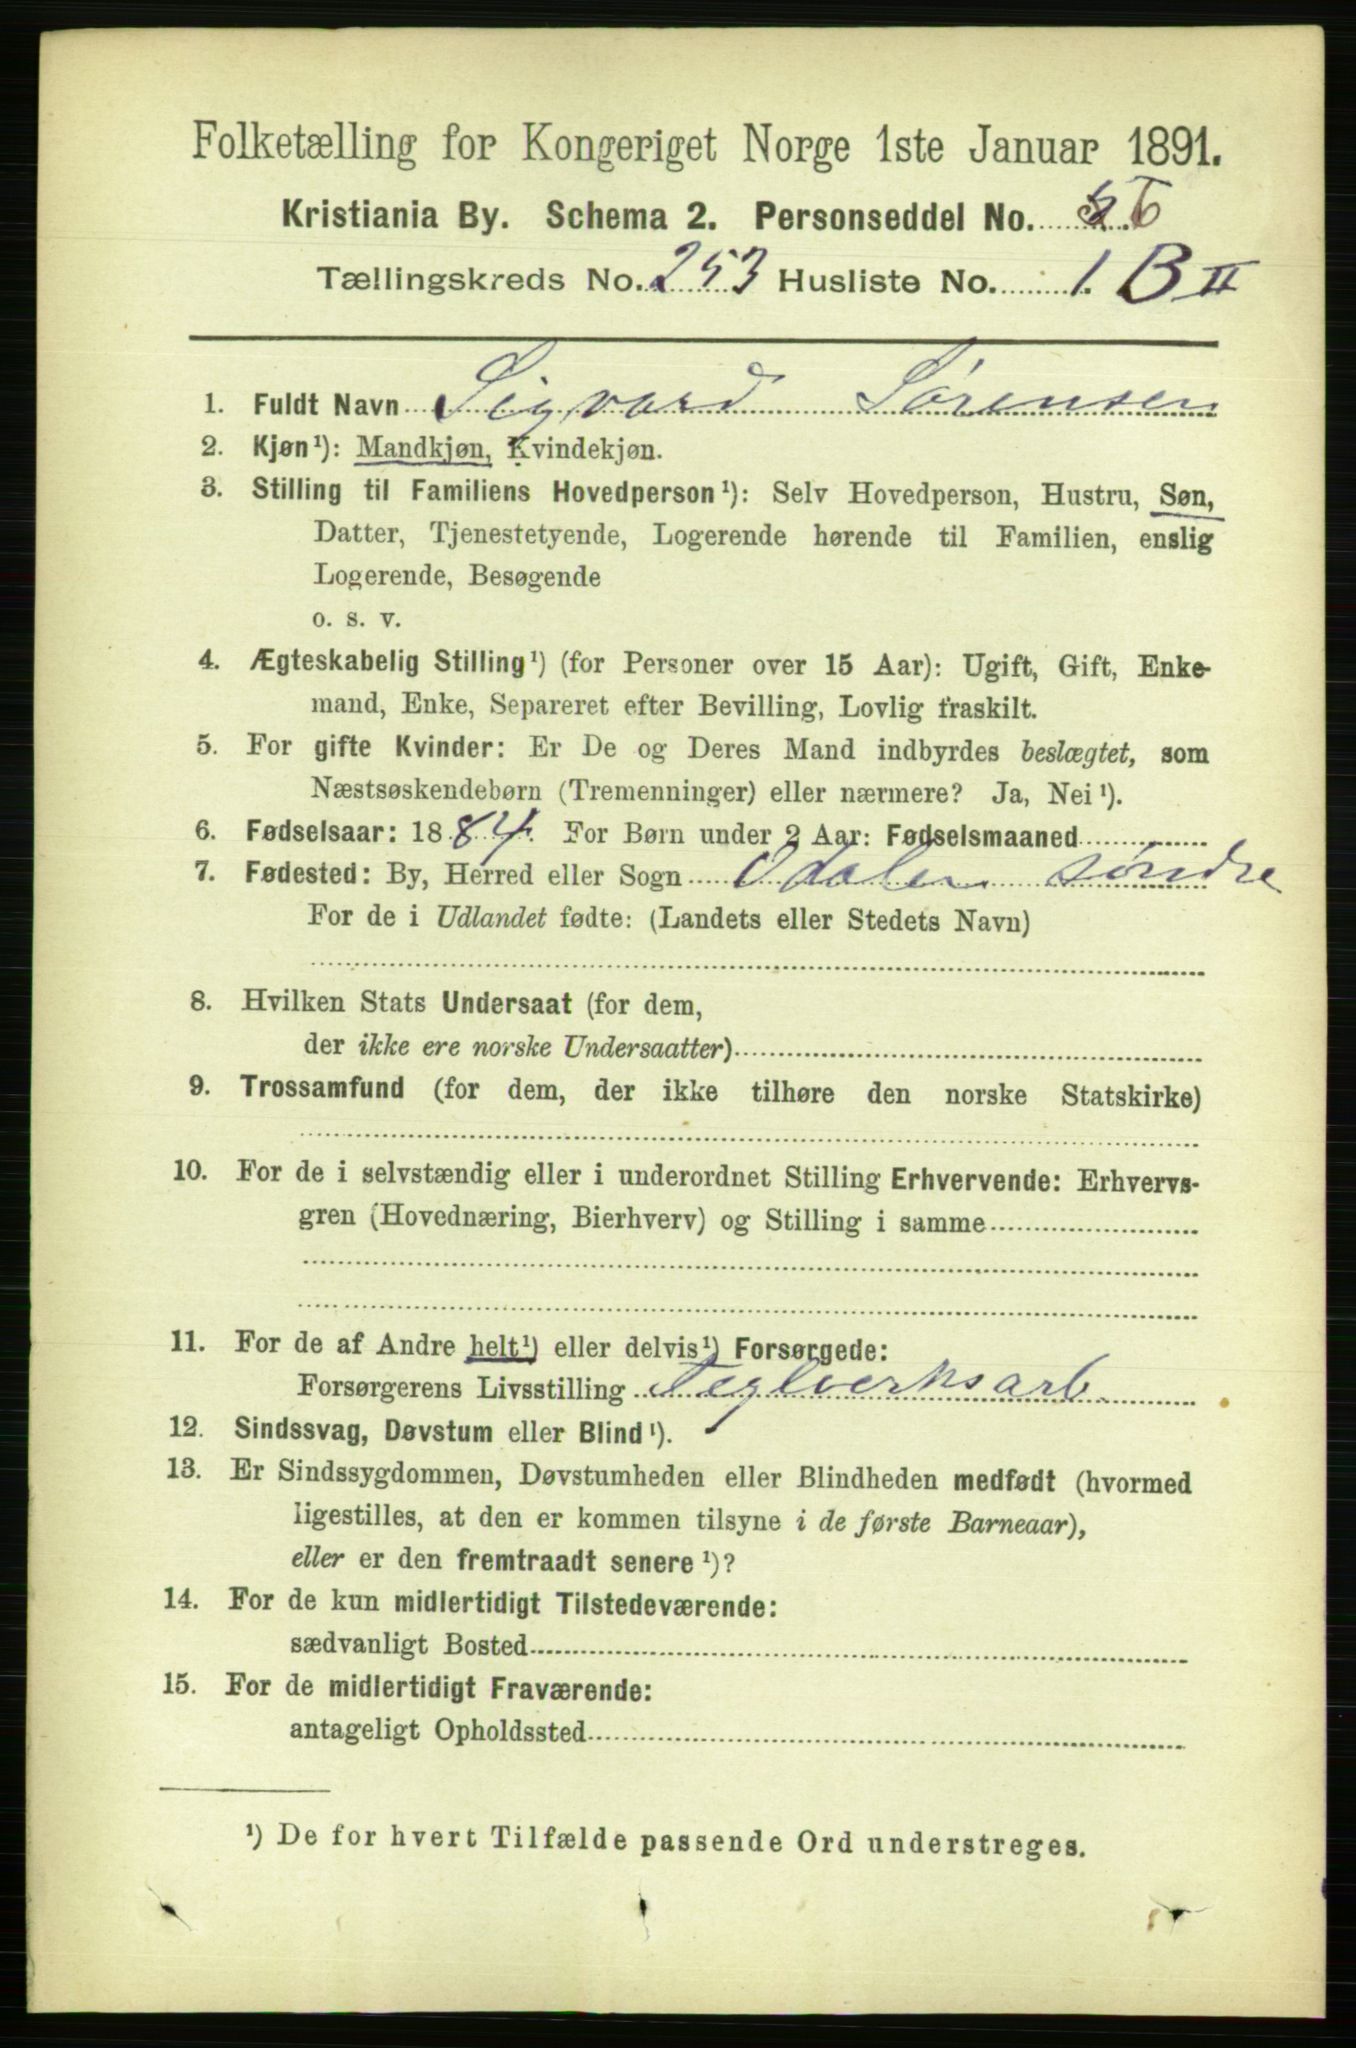 Folketælling for Kongeriget Norge 1ste Januar 1891.
Kristiania By. Schema 2. Personseddel No. 6
Tællingskreds No. 253 Husliste No. 1. B II
1. Fuldt Navn Sigvard Sørensen
2. Kjøn¹): Mandkjøn, Kvindekjøn.
3. Stilling til Familiens Hovedperson¹): Selv Hovedperson, Hustru, Søn,
Datter, Tjenestetyende, Logerende hørende til Familien, enslig
Logerende, Besøgende
o. s. v.
4. Ægteskabelig Stilling¹) (for Personer over 15 Aar): Ugift, Gift, Enke-
mand, Enke, Separeret efter Bevilling, Lovlig fraskilt.
5. For gifte Kvinder: Er De og Deres Mand indbyrdes beslægtet, som
Næstsøskendebørn (Tremenninger) eller nærmere? Ja, Nei¹).
6. Fødselsaar: 1884. For Børn under 2 Aar: Fødselsmaaned
7. Fødested: By, Herred eller Sogn Odalen søndre
For de i Udlandet fødte: (Landets eller Stedets Navn)
8. Hvilken Stats Undersaat (for dem,
der ikke ere norske Undersaatter)
9. Trossamfund (for dem, der ikke tilhøre den norske Statskirke)
10. For de i selvstændig eller i underordnet Stilling Erhvervende: Erhvervs-
gren (Hovednæring, Bierhverv) og Stilling i samme
11. For de af Andre helt¹) eller delvis¹) Forsørgede:
Forsørgerens Livsstilling Teglverksarb.
12. Sindssvag, Døvstum eller Blind¹).
13. Er Sindssygdommen, Døvstumheden eller Blindheden medfødt (hvormed
ligestilles, at den er kommen tilsyne i de første Barneaar),
eller er den fremtraadt senere¹)?
14. For de kun midlertidigt Tilstedeværende:
sædvanligt Bosted
15. For de midlertidigt Fraværende:
antageligt Opholdssted
¹) De for hvert Tilfælde passende Ord understreges.